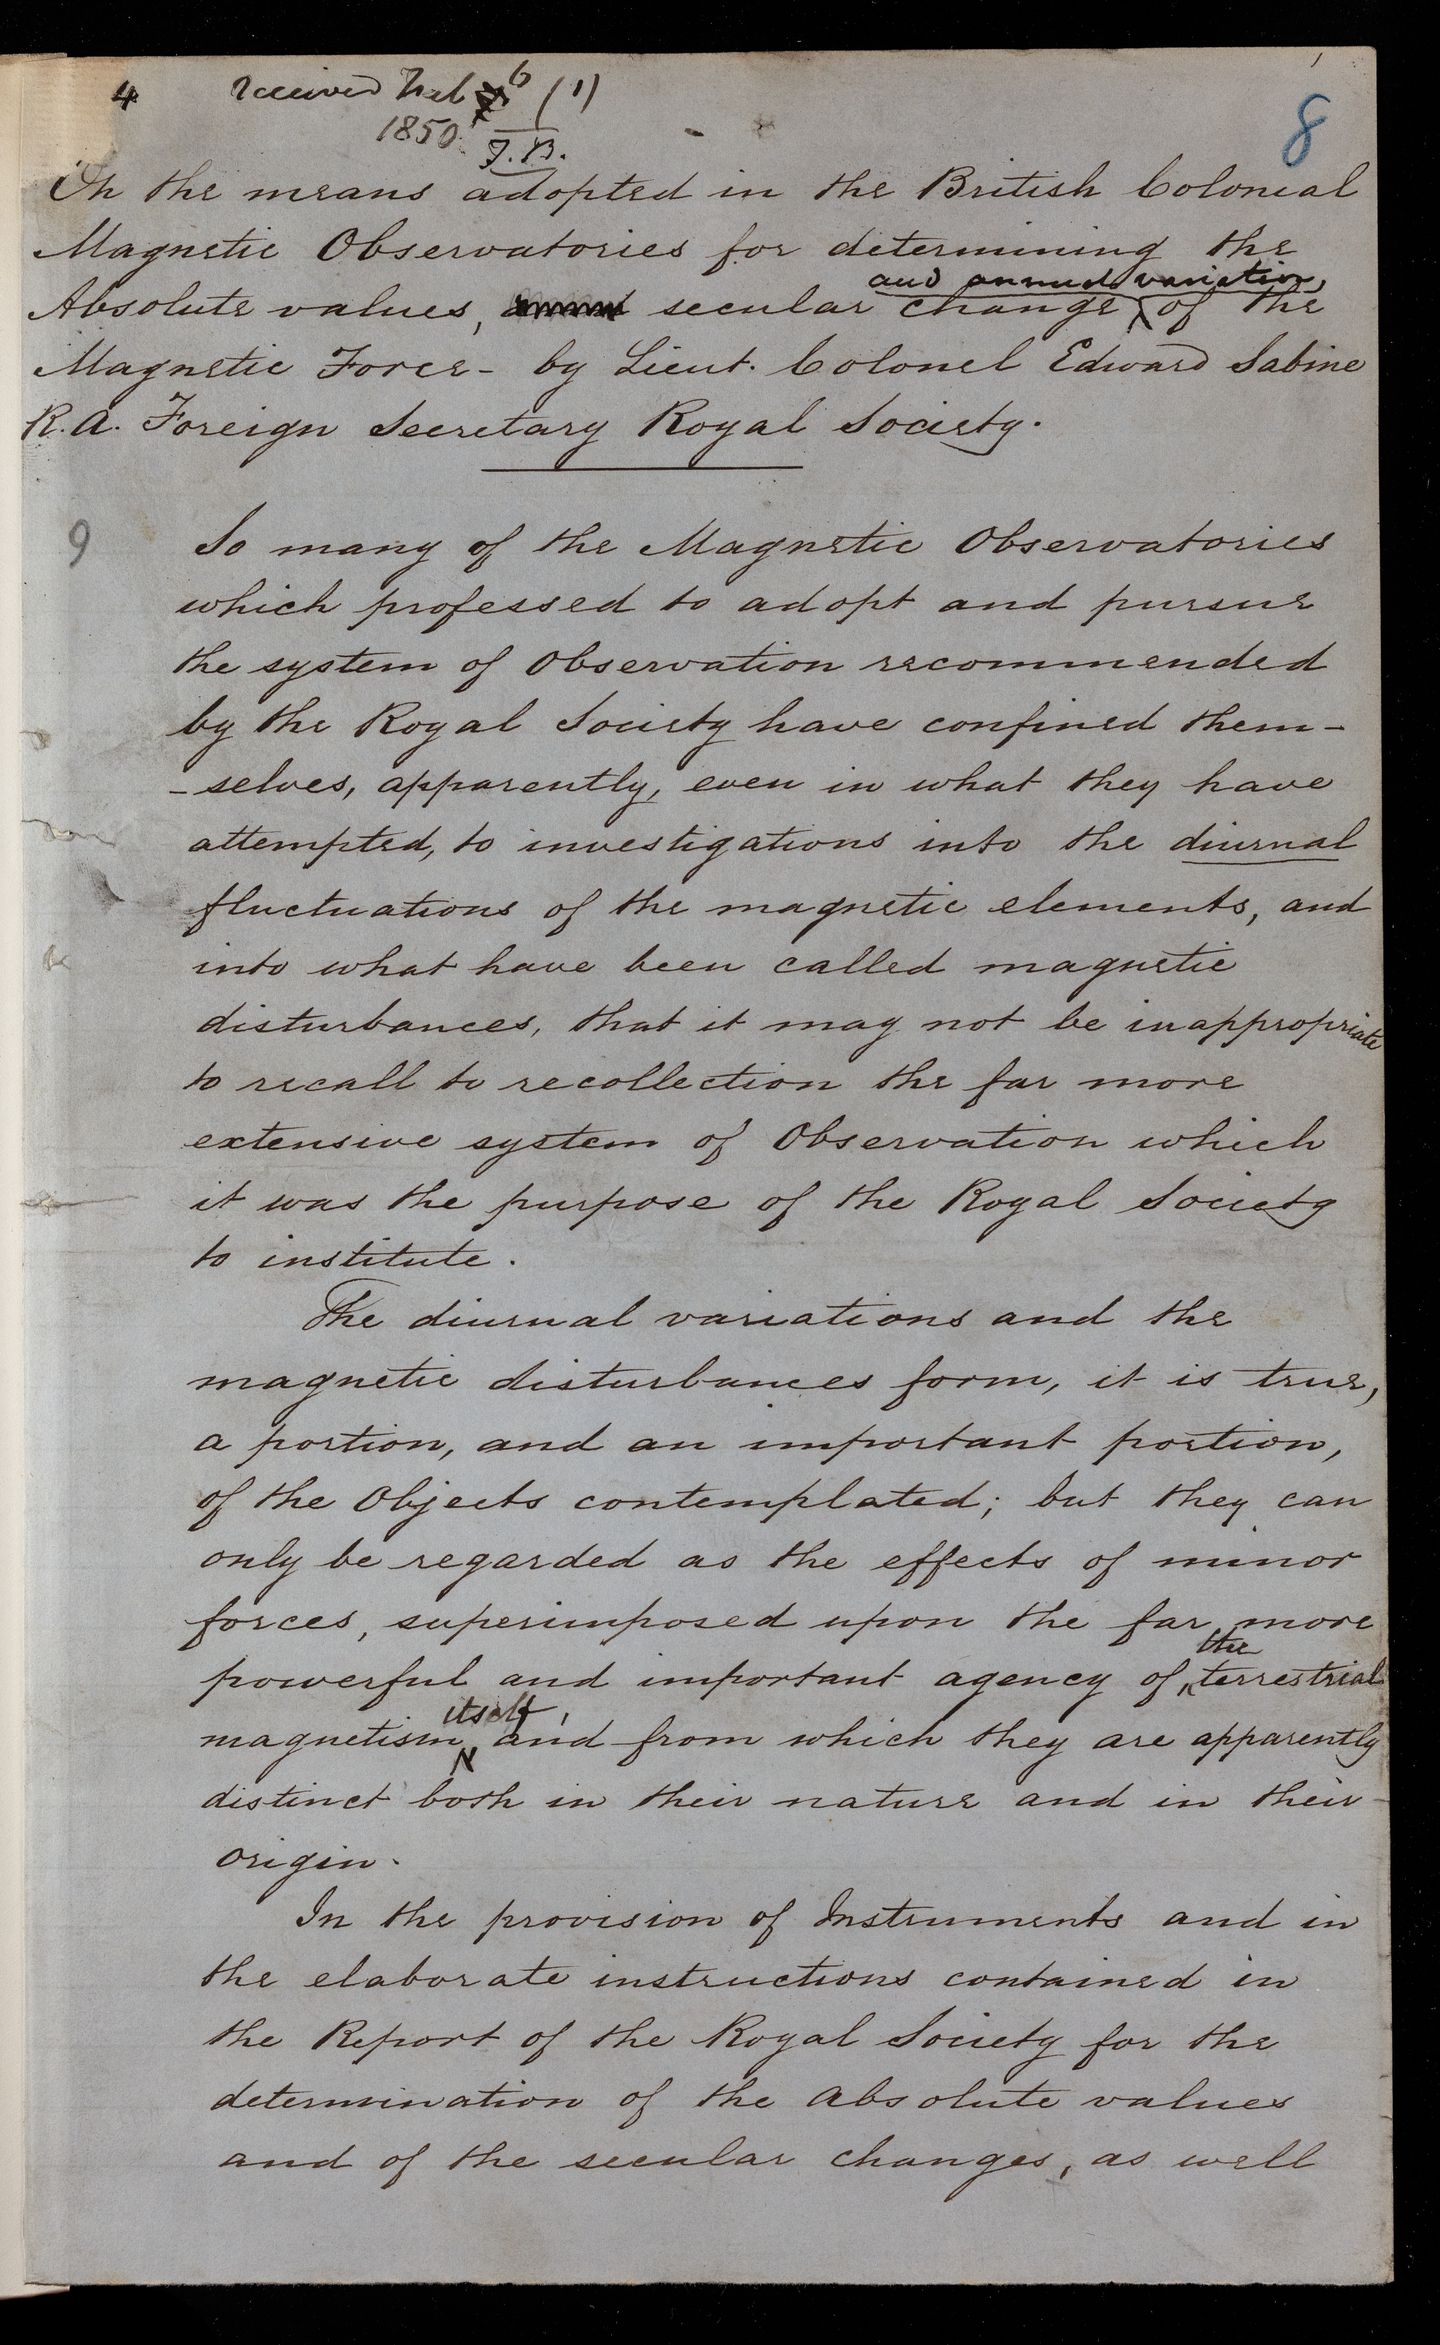 4 Received Feb 6 (1) 8
1850 J.B.
On the means adopted in the British Colonial
Magnetic Observatories for determining the
and annual variation,
Absolute values, secular change of the
Magnetic Force - by Lieut. Colonel Edward Sabine
R.A. Foreign Secretary Royal Society.
9 So many of the Magnetic Observatories
which professed to adopt and pursue
the system of Observation recommended
by the Royal Society have confined them-
-selves, apparently, even in what they have
attempted, to investigations into the diurnal
fluctuations of the magnetic elements, and
into what have been called magnetic
disturbances, that it may not be inappropriate
to recall to recollection the far more
extensive system of Observation which
it was the purpose of the Royal Society
to institute.
The diurnal variations and the
magnetic disturbances form, it is true,
a portion, and an important portion,
of the Objects contemplated; but they can
only be regarded as the effects of minor
forces, superimposed upon the far more
the
powerful and important agency of terrestrial
itself,
magnetism and from which they are apparently
distinct both in their nature and in their
origin.
In the provision of Instruments and in
the elaborate instructions contained in
the Report of the Royal Society for the
determination of the Absolute values
and of the secular changes, as well